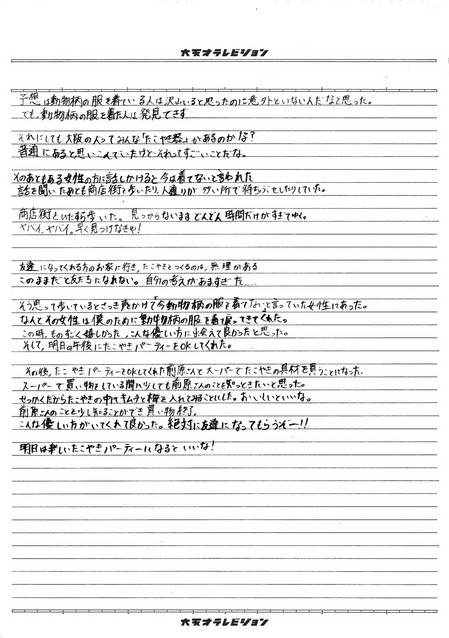 大天才テレビジョン
予想は動物柄の服を着ている人は沢山いると思ったのに意外といないんだなと思った。
でも、動物柄の服を着た人は発見できず…
それにしても大阪の人ってみんな「たこやき器」があるのかな?
普通にあると思いこんでいたけどそれってすごいことだな。
そのあともある女性の方に話しかけると今は着てないと言われた
話を聞いたあとも商店街を歩いたり、人通りが多い所で待ちぶせしたりしていた。
商店街をひたすら歩いた。見つからないままどんどん時間だけがすぎてゆく。
ヤバイ、ヤバイ。早く見つけなきゃ!
友達になってくれる方のお家に行き、たこやきをつくるのは、無理がある
このままだと友だちになれない。自分の考えがあますぎた…
そう思って歩いているとさっき声かけて「今動物柄の服を着てない」と言っていた女性にあった。
なんとその女性は僕のために動物柄の服を着て戻ってきてくれた。
この時、ものすごく嬉しかった。こんな優しい方に出会えて良かったと思った。
そして、明日の午後にたこやきパーティーをOKしてくれた。
その後、たこやきパーティーをOKしてくれた前原さんとスーパーでたこやきの具材を買うことになった。
スーパーで買い物をしている間に少しでも前原さんのことを知っときたいと思った。
せっかくだからたこやきの中にキムチと梅を入れてみることにした。おいしいといいな。
前原さんのことも少し知ることができ買い物終了。
こんな優しい方がいてくれて良かった。絶対に友達になってもらうぞー!!
明日は楽しいたこやきパーティーになるといいな!
大天才テレビジョン